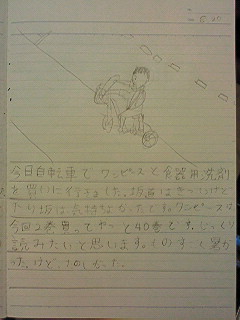 今日自転車でワンピースと食器用洗剤
を買いに行きました。坂道はきつかったけど
下り坂は気持ちよかったです。ワンピースは
今回2巻買ってやっと40巻です。じっくり
読みたいと思います。
けど、たのしかった。